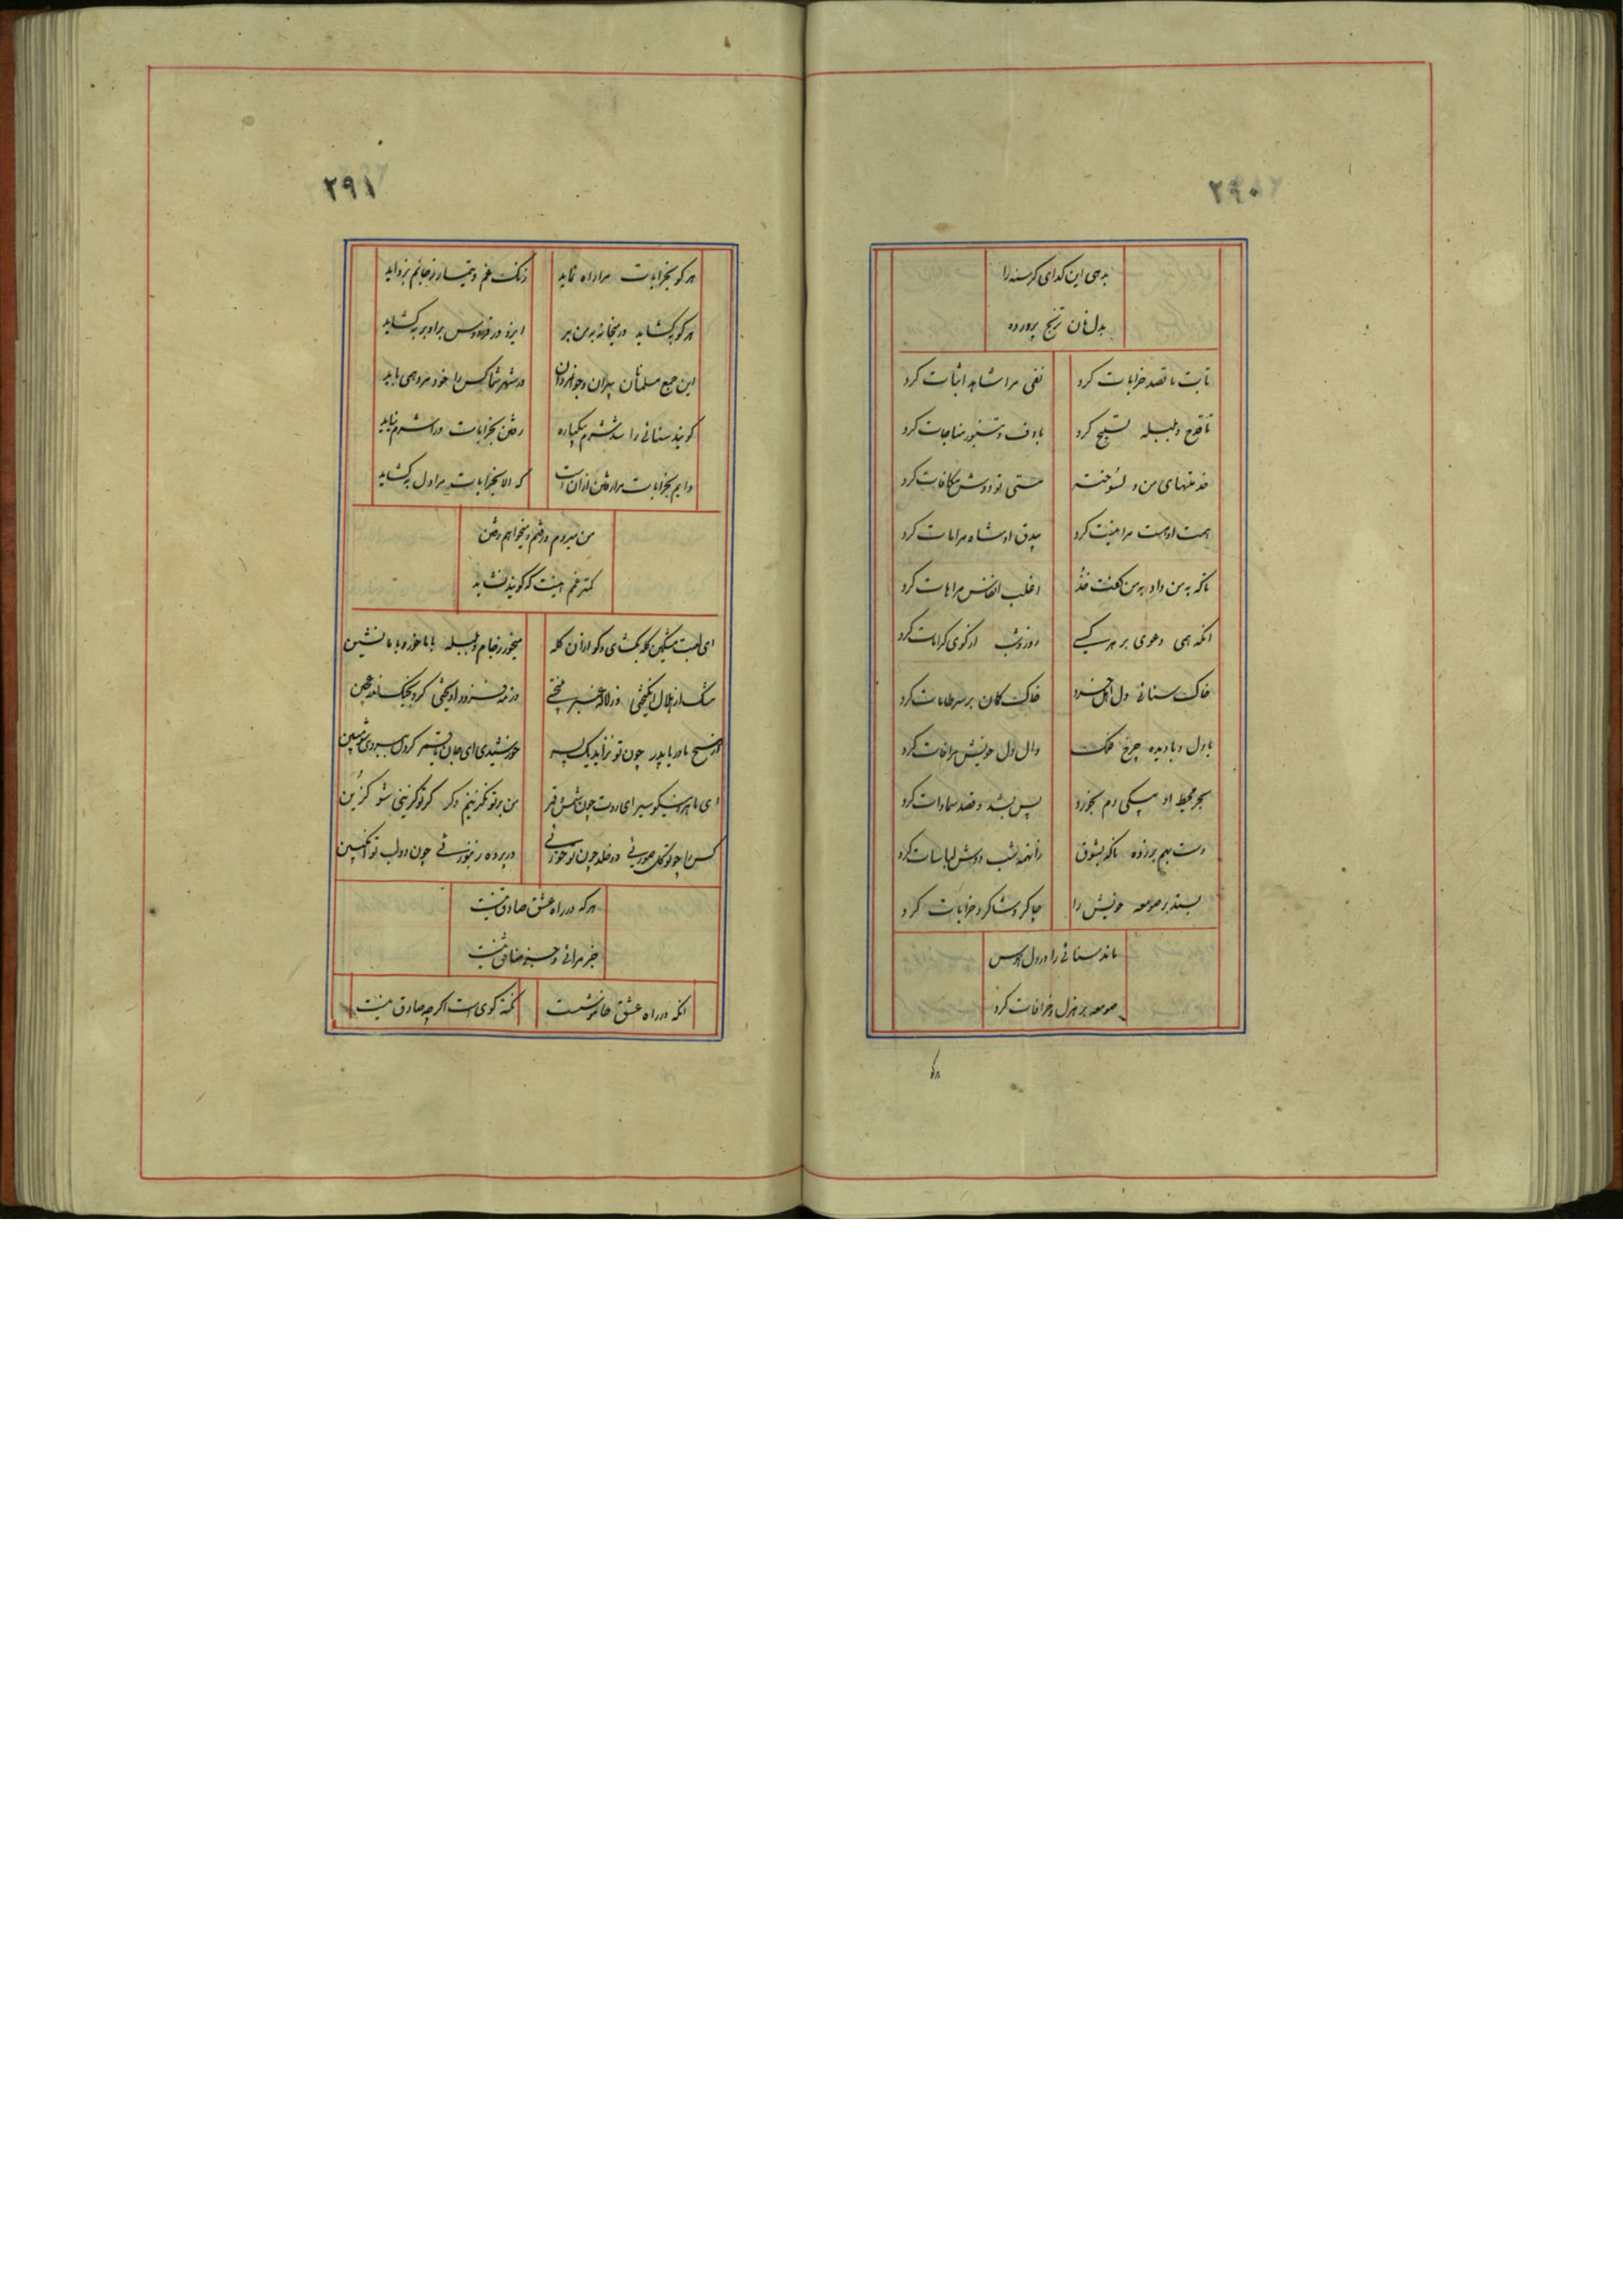 ۲۹۰
بدهی این گدای گرسنه را
بدل نان ترنج پرورده
تا بت ما قصد خرابات کرد نفی مرا شاهد اثبات کرد
تا قدح و بلبله تسبیح کرد با دف و تنبور مناجات کرد
خدمتهای من و مستی تو دوش مکافات کرد
همت او هست مرا نیست کرد بیدق او شاه مرا مات کرد
تا که به من داد به من گفت خذ اغلب انفاس مرا هات کرد
آنکه همی دعوی بر هر کسی روز و شب از کوی کرامات کرد
خاک سنائی دل خاک کان بر سر طامات کرد
با دل و با دیده چرخ فلک دل خویش مراعات کرد
بحر محیط او بیکی دم بخورد پس بشد و قصد سماوات کرد
دست بهم بر زده ناگه بشوق زانهمه شب دوش لباسات کرد
بستد بر صومعه خویش را چاکر و شاگرد خرابات کرد
ماند سنائی را در دل هوس
صومعه بر هزل و خرافات کرد
۲۹۱
هر کو بخرابات مرا راه نماید زنگ غم و تیمار ز جانم بزداید
هر کو بگشاید در میخانه به من بر ایزد در فردوس بر او بر بگشاید
این جمع مسلمانان پیران و جوانمردان در شهر شما کس را خود مزد همی باید
گویند سنائی را شد شرم بیکباره رفتن بخرابات ورا شرم نیاید
دایم بخرابات مرا رفتن از آن است که الا بخرابات مرا دل نگشاید
من میروم و رفتم و میخواهم رفتن
کمتر غم اینست که گویند نشاید
ای لعبت مشکین کله بگشای و گو از آن گله میخور ز جام و بلبله با ما خور و با ما نشین
مشک از هلال انگیختی وز لاله عنبر بیختی
از نسج مادر با پدر چون تو نزاید یک پسر خورشیدی ای جان پسر
ای ماهروی نیکو سیر ای روت چون شمس و قمر من بر تو نگزینم دگر گر تو گزینی شو گزین
در خلد چون تو حورنی در پرده زنبور نی چون دو لب تو انگبین
هر که در راه عشق صادق نیست
جز مرائی و جز منافق نیست
آنکه در راه عشق خاموشست نکته گوی است اگر چه صادق نیست